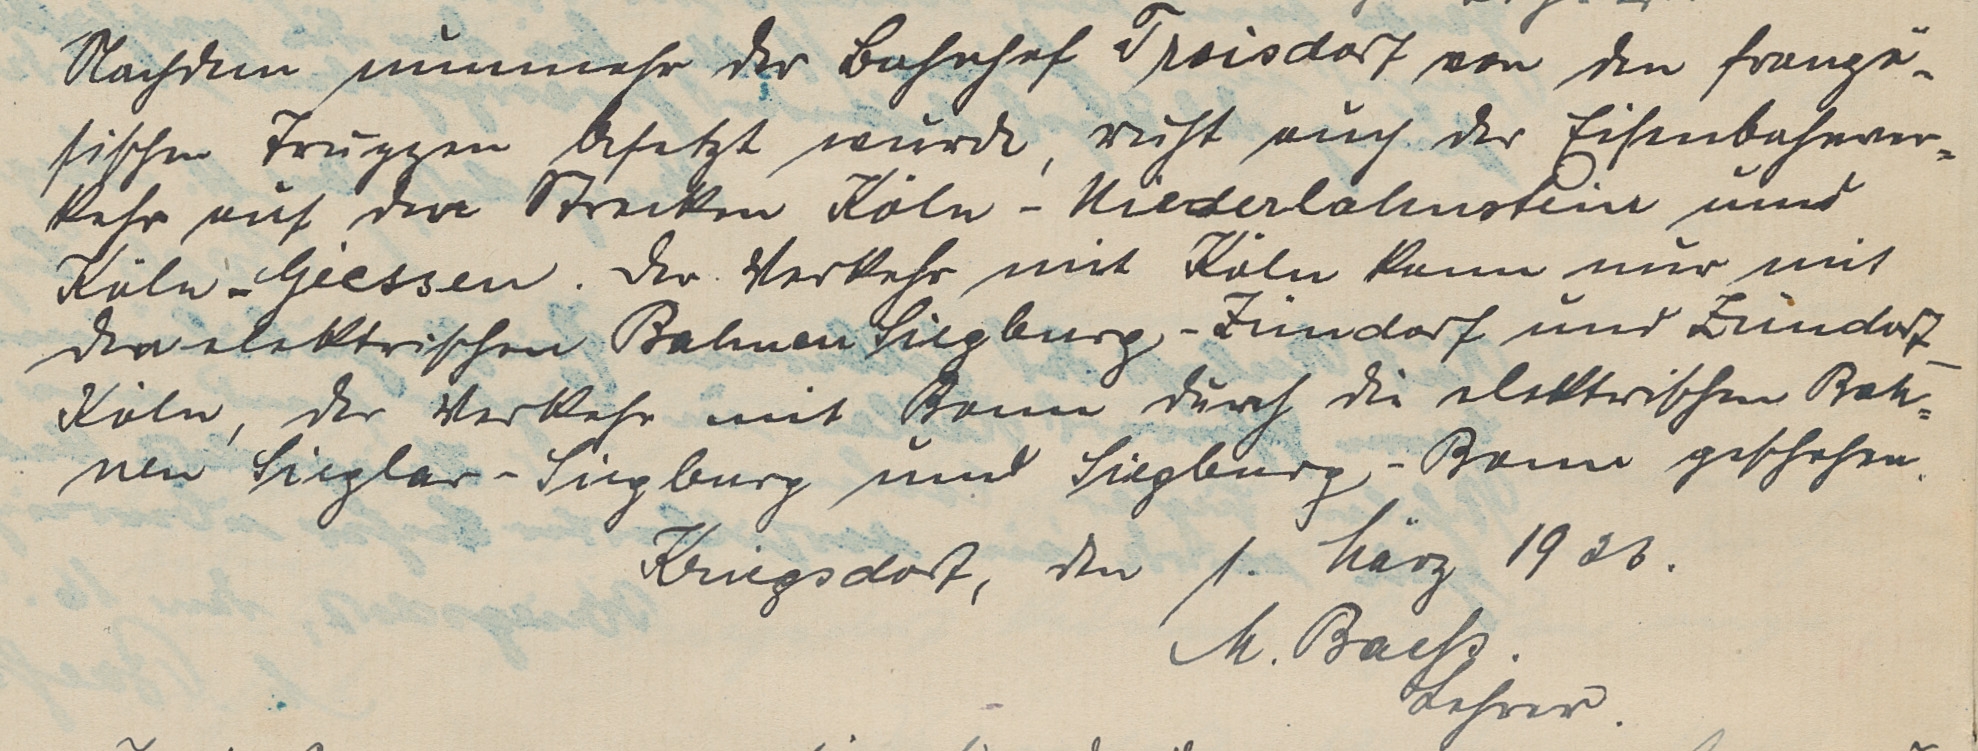 Nachdem nunmehr der Bahnhof Troisdorf von den franzö-
sischen Truppen besetzt wurde, ruht auch der Eisenbahnver-
kehr auf den Strecken Köln - Niederlahnstein und
Köln - Giessen. Der Verkehr mit Köln kann nur mit
den elektrischen Bahnen Siegburg - Zündorf und Zündorf -
Köln, der Verkehr mit Bonn durch die elektrischen Bah-
nen Sieglar - Siegburg und Siegburg - Bonn geschehen.
Kriegsdorf, den 1. März
M. Baeß.
Lehrer.